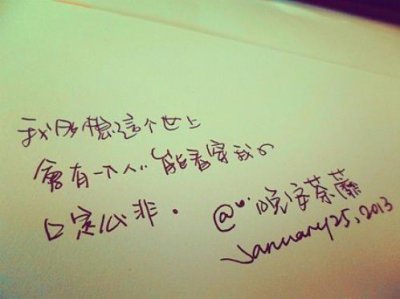 我多想這个世上
會有一个人 能看穿我的
口是心非. @晚安荼蘼
January 25, 2013